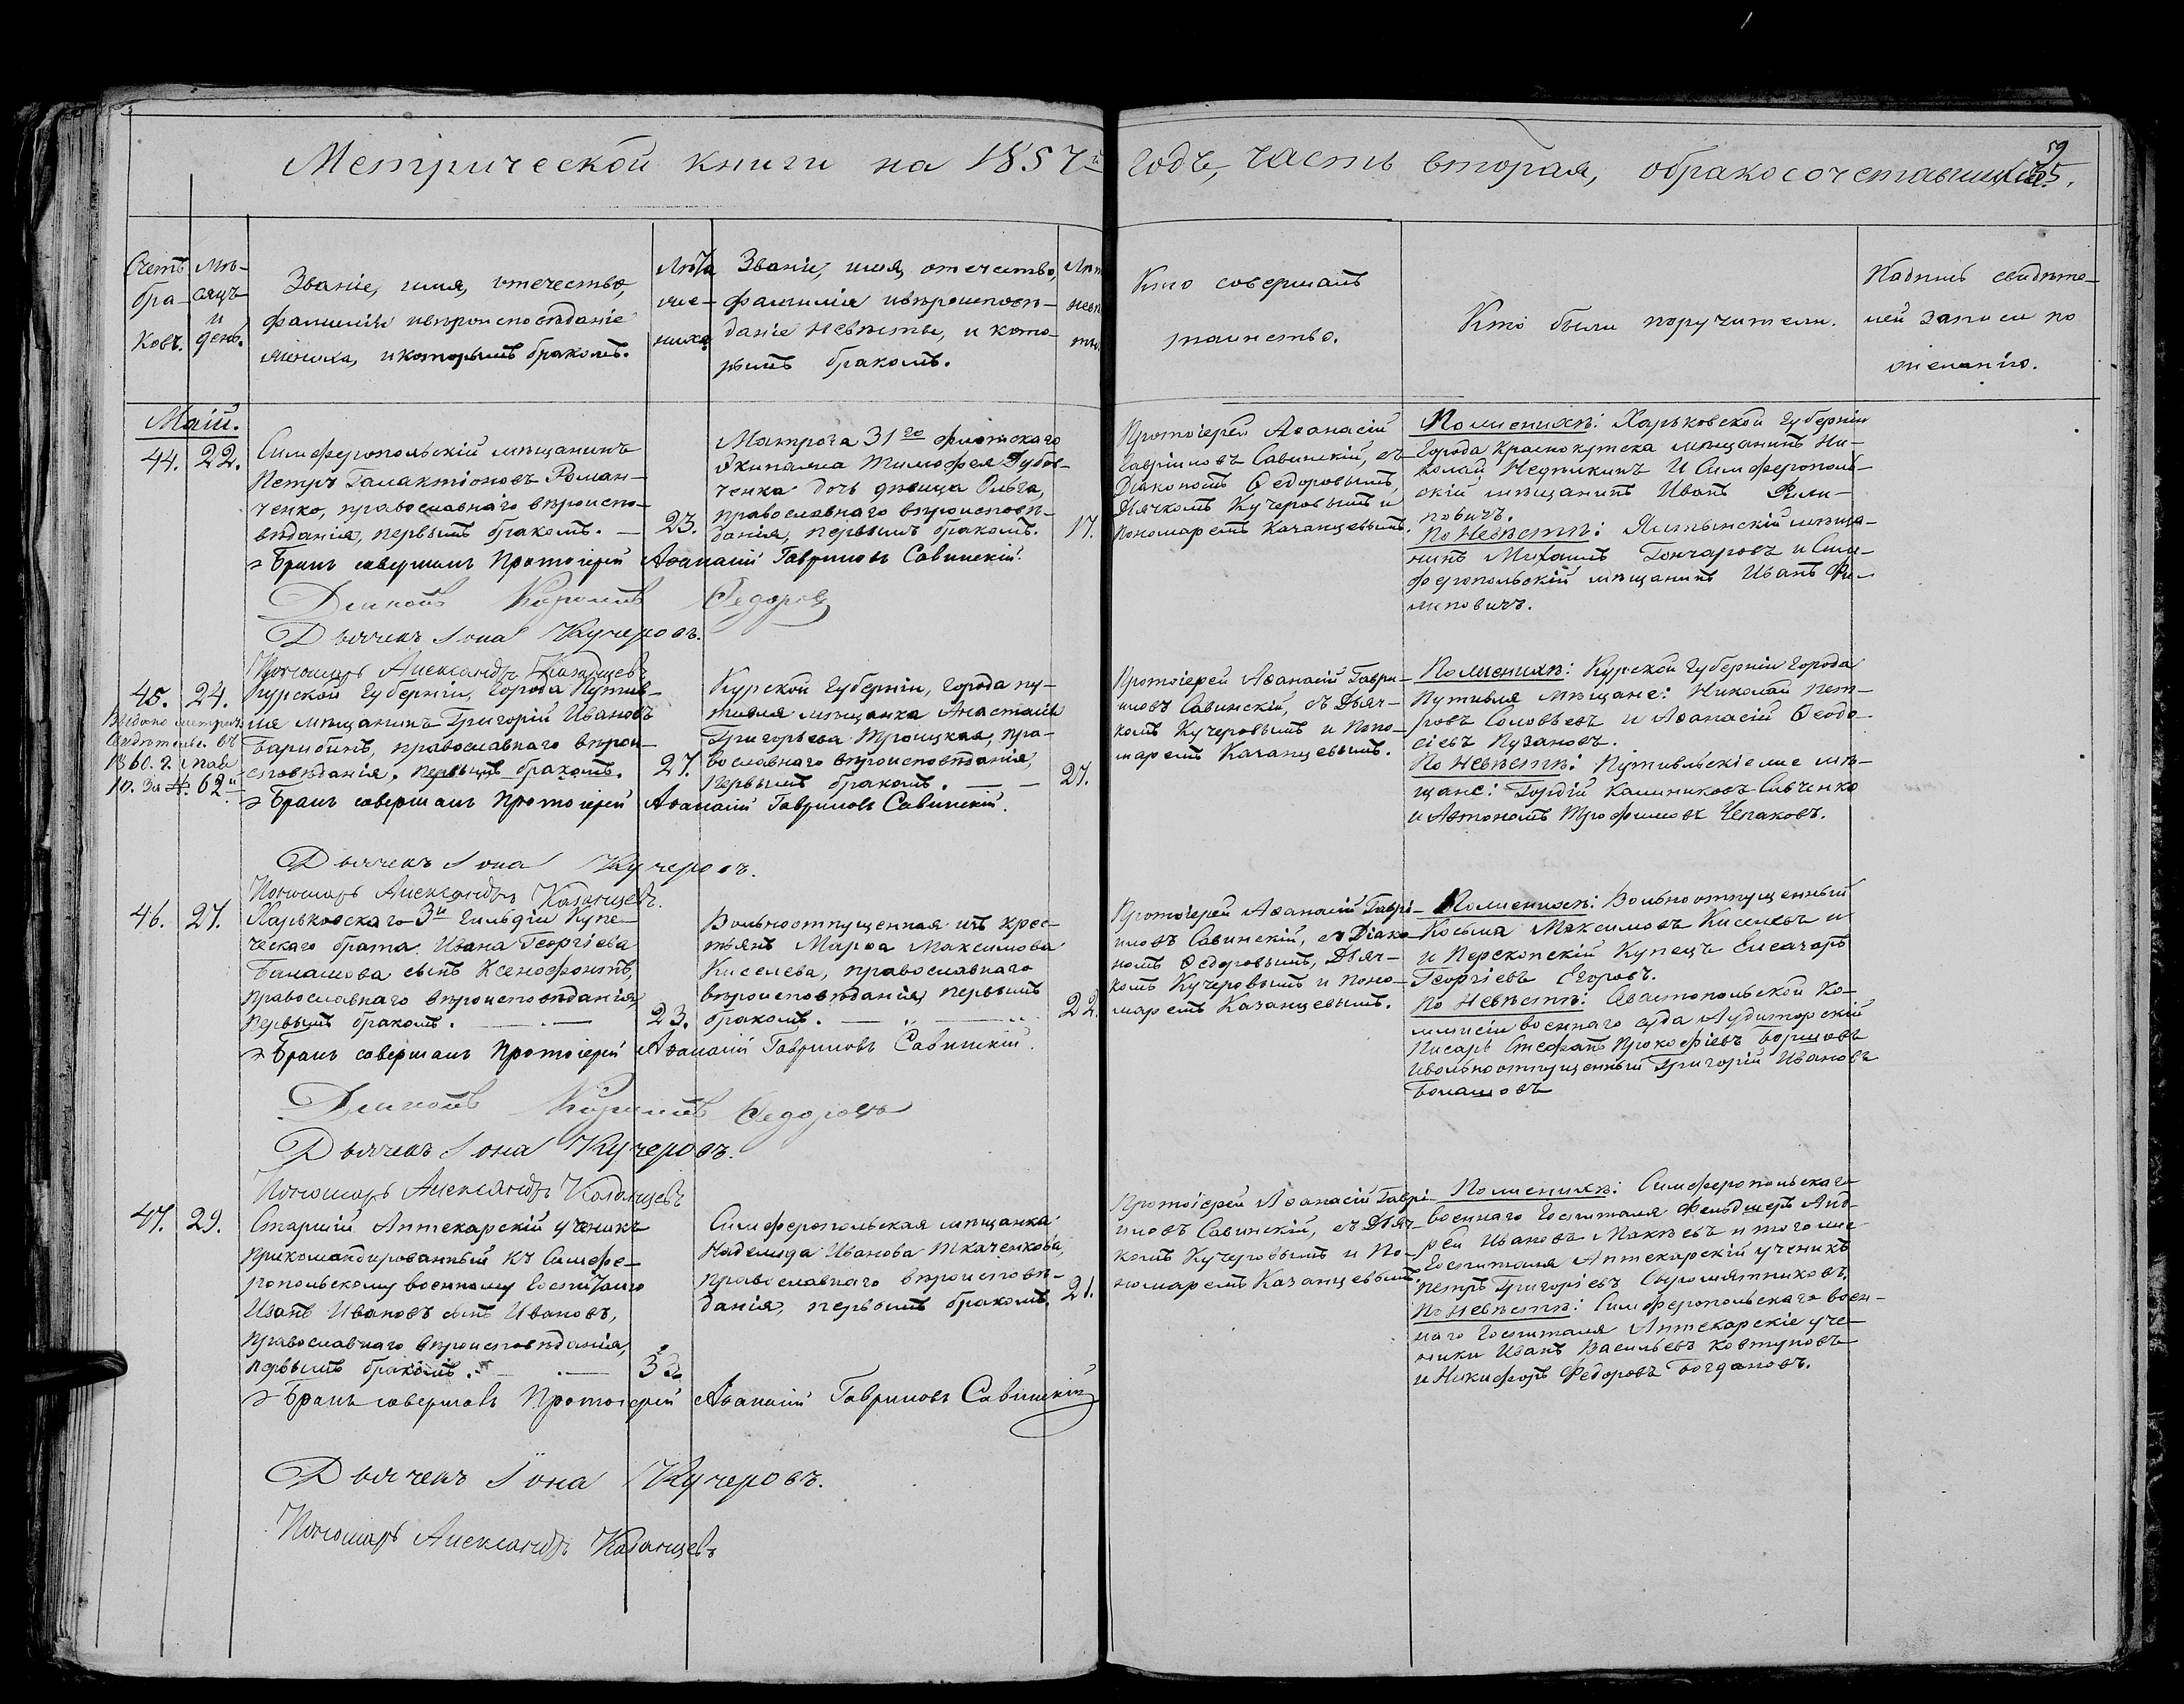 Метрической книги на 1857й годъ, часть вторая, обракосочетавшихся.
59
35.
Счетъ бра-
ковъ.
Мѣ-
сяцъ
и
день.
Званіе, имя, отечество,
фамилія ивѣроисповѣданіе
жениха, икоторымъ бракомъ.
Лѣта
же-
ниха
Званіе, имя, отечество,
фамилія ивѣроисповѣ-
даніе невѣсты, и кото-
рымъ бракомъ.
Лѣт
невѣ
Кто совершалъ
таинство.
Кто были поручители.
Подпись свидѣте-
лей записи по
желанію.
Маій.
44. 22.
Симферопольскій мѣщанинъ
Петръ Галактіоновъ Роман-
ченко, православнаго вѣроиспо-
вѣданія, первымъ бракомъ. —
23.
Матроса 31го флотскаго
Экипажа Тимофея Дубов-
ченка дочь дѣвица Ольга,
православнаго вѣроисповѣ-
данія, первымъ бракомъ.
17.
Протоіерей Аѳанасій
Гавріиловъ Савинскій, съ
Діакономъ Ѳедоровымъ,
Дьячкомъ Кучеровымъ и
пономаремъ Казанцевымъ.
По женихѣ: Харьковской Губерніи
Города Краснокутска мѣщанинъ Ни-
колай и Симферополь-
скій мѣщанинъ Иванъ Фили-
повичъ.
По Невѣстѣ: Ялтынскій мѣща-
нинъ Михаилъ Гончаровъ и Сим-
феропольскій мѣщанинъ Иванъ Фи-
липовичъ.
Бракъ совершалъ Протоіерей Аѳанасій Гавриловъ Савинскій.
Діаконъ Ѳедоровъ
Дьячекъ Іона Кучеровъ.
Пономарь Александръ Казанцевъ
45. 24.
Выдано метрич.
свидѣтельс. въ
1860. г. мая
10. за №. 62м
Курской Губерніи, Города Путив-
ля мѣщанинъ Григорій Ивановъ
Барыбинъ, православнаго вѣрои-
сповѣданія, первымъ бракомъ.
27.
Курской Губерніи, города Пу-
тивля мѣщанка Анастасія
Григорьева Троицкая, пра-
вославнаго вѣроисповѣданія,
первымъ бракомъ. — —
21.
Протоіерей Аѳанасій Гаврі-
иловъ Савинскій, съ Дьяч-
комъ Кучеровымъ и Поно-
маремъ Казанцевымъ.
По женихѣ: Курской Губерніи Города
Путивля мѣщане: Николай Пет-
ровъ Соловьевъ и Аѳанасій Ѳеодо-
сіевъ Пузановъ.
По невѣстѣ: Путивльскіе же мѣ-
щане: Гордій Калиниковъ Савченко
и Автономъ Трофимовъ Чепаковъ.
Бракъ совершалъ Протоіерей Аѳанасій Гавриловъ Савинскій.
Дьячекъ Іона Кучеровъ.
Пономарь Александръ Казанцевъ.
46. 27.
Харьковскаго 3й Гильдіи Купе-
ческаго брата Ивана Георгіева
Балашова сынъ Ксенофонтъ,
православнаго вѣроисповѣданія,
первымъ бракомъ. — . —
23.
Вольноотпущенная изъ крес-
тьянъ Марѳа Максимова
Киселева, православнаго
вѣроисповѣданія, первымъ
бракомъ. —
22.
Протоіерей Аѳанасій Гаврі-
иловъ Савинскій, съ Діако-
номъ Ѳедоровымъ, Дьяч-
комъ Кучеровымъ и Поно-
маремъ Казанцевымъ.
По женихѣ: Вольноотпущенный
Косьма Максимовъ Киселевъ и
и Перекопскій Купецъ
Георгіевъ Егоровъ.
По Невѣстѣ: Севастопольской Ко-
мисіи военнаго суда Аудиторскій
Писарь Стефанъ Прокофіевъ Борщовъ
ивольноотпущенный Григорій Ивановъ
Балашовъ
Бракъ совершалъ Протоіерей Аѳанасій Гавриловъ Савинскій.
Діаконъ Ѳедоровъ
Дьячекъ Іона Кучеровъ.
Пономарь Александръ Казанцевъ
47. 29.
Старшій Аптекарскій ученикъ
прикомандированный къ Симфе-
ропольскому военному Госпиталю
Иванъ Ивановъ сынъ Ивановъ,
православнаго вѣроисповѣданія,
первымъ бракомъ. — . —
Симферопольская мѣщанка
Надежда Иванова Ткаченкова,
православнаго вѣроисповѣ-
данія, первымъ бракомъ.
21.
Протоіерей Аѳанасій Гаврі-
иловъ Савинскій, съ Дьяч-
комъ Кучеровымъ и По-
номаремъ Казанцевымъ.
По женихѣ: Симферопольскаго
военнаго Госпиталя Фельдшеръ Анд-
рей Ивановъ Макѣевъ и того же
Госпиталя Аптекарскій ученикъ
Петръ Григоріевъ Сыромятниковъ.
По невѣстѣ: Симферопольскаго воен-
наго Госпиталя Аптекарскіе уче-
ники Иванъ Васильевъ Ковтуновъ
и Никифоръ Федоровъ Богдановъ.
Бракъ совершалъ Протоіерей Аѳанасій Гавриловъ Савинскій
Дьячекъ Іона Кучеровъ.
Пономарь Александръ Казанцевъ